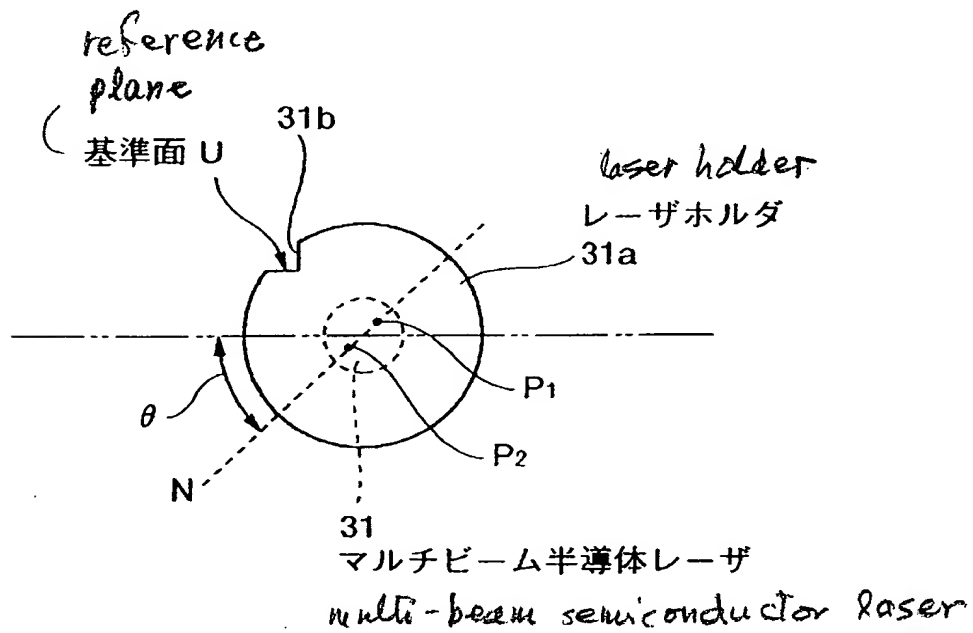 reference
plane
31b
基準面 U
laser holder
レーザホルダ
31a
θ
P1
P2
N
31
マルチビーム半導体レーザ
multi-beam semiconductor laser